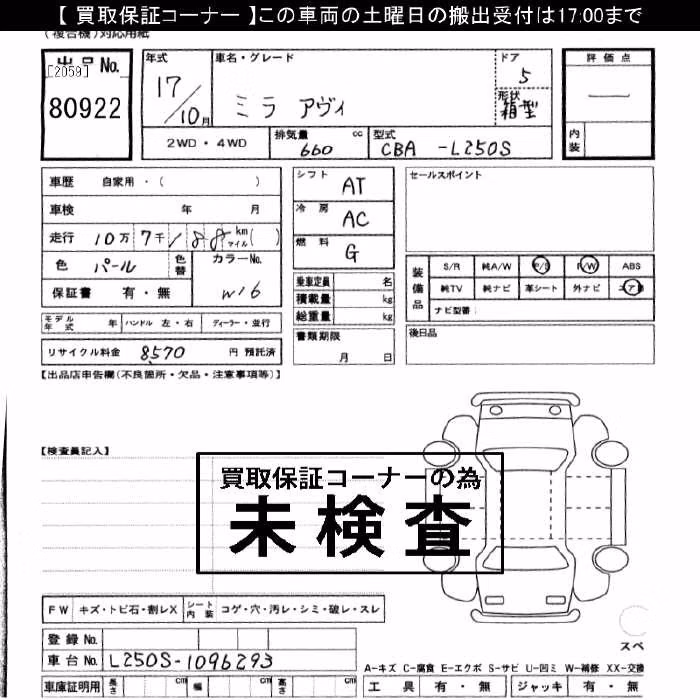 【 買取保証コーナー 】この車両の土曜日の搬出受付は17:00まで
(複合機)対応用紙
出品No.
[2059]
80922
年式
17/10月
車名・グレード
ミラ アヴィ
ドア
5
形状
箱型
評価点
内装
2WD・4WD
排気量 cc
660
型式
CBA -L250S
車歴 自家用・( )
車検 年 月
走行 10万 7千 188 km マイル( )
色 パール 色替 カラーNo. W16
保証書 有・無
モデル年式 年 ハンドル 左・右 ディーラー・並行
リサイクル料金 8,570 円 預託済
シフト AT
冷房 AC
燃料 G
乗車定員 名
積載量 kg
総重量 kg
書類期限
月 日
セールスポイント
装備品
S/R 純A/W P/S P/W ABS
純TV 純ナビ 革シート 外ナビ
ナビ型番:
後日品
【出品店申告欄(不良箇所・欠品・注意事項等)】
【検査員記入】
買取保証コーナーの為
未検査
FW キズ・トビ石・割レX シート内装 コゲ・穴・汚レ・シミ・破レ・スレ
登録 No.
車台 No. L250S-1096293
車庫証明用 長さ cm 幅 cm 高さ cm
スペ
A-キズ C-腐食 E-エクボ S-サビ U-凹ミ W-補修 XX-交換
工具 有・無 ジャッキ 有・無